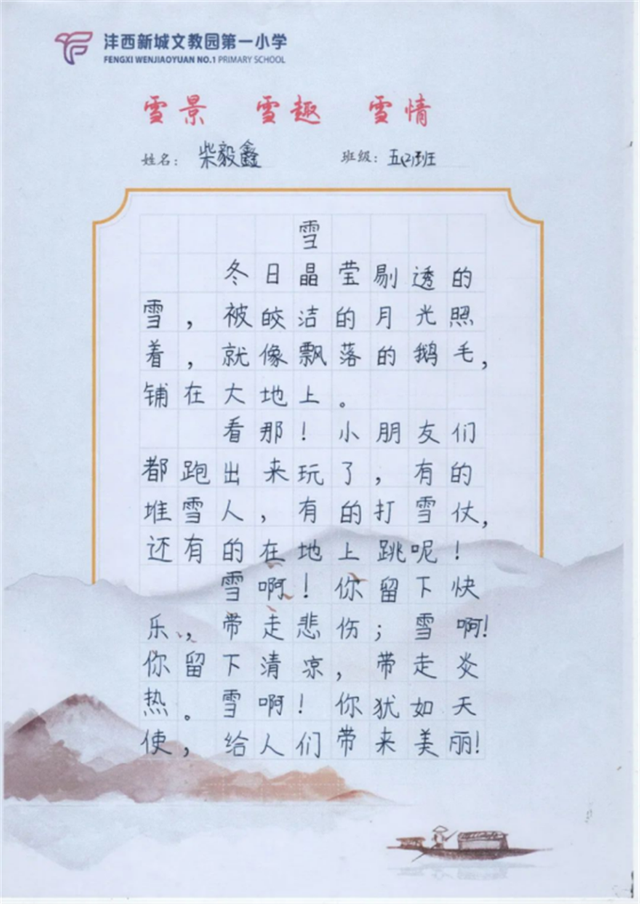 沣西新城文教园第一小学
FENGXI WENJIAOYUAN NO.1 PRIMARY SCHOOL
雪景 雪趣 雪情
姓名：柴毅鑫 班级：五(2)班
雪
冬日晶莹剔透的
雪，被皎洁的月光照
着，就像飘落的鹅毛，
铺在大地上。
看那！小朋友们
都跑出来玩了，有的
堆雪人，有的打雪仗，
还有的在地上跳呢！
雪啊！你留下快
乐，带走悲伤；雪啊！
你留下清凉，带走炎
热。雪啊！你犹如天
使，给人们带来美丽！